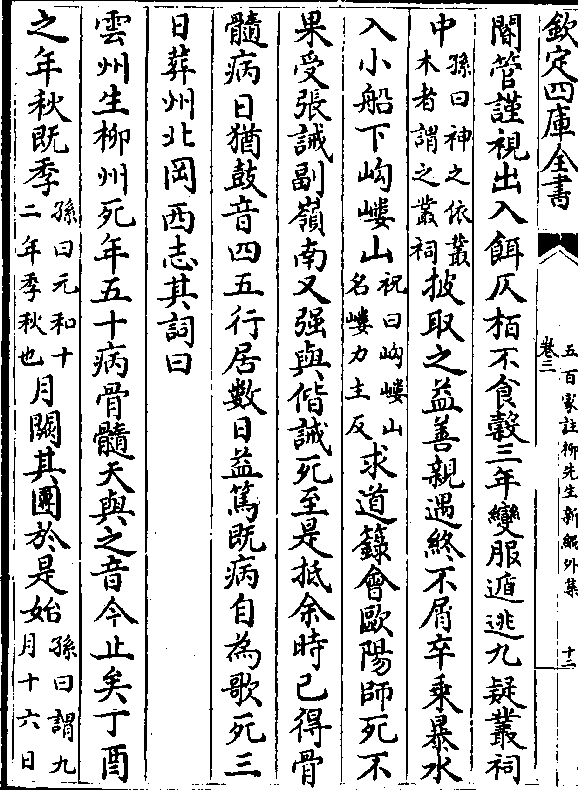 欽定四庫全書
五百家註柳先生新編外集
卷三
十二
閽管謹視出入餌仄栢不食穀三年變服遁逃九疑叢祠
中孫曰神之依叢木者謂之叢祠披取之益善親遇終不屑卒乘暴水
入小船下岣嶁山祝曰岣嶁山名嶁力主反求道籙會歐陽師死不
果受張誠副嶺南又强與偕誠死至是抵余時已得骨
髓病日猶鼓音四五行居數日益篤既病自為歌死三
日葬州北岡西志其詞曰
雲州生柳州死年五十病骨髓天與之音今止矣丁酉
之年秋既季孫曰元和十二年季秋也月闕其圓於是始孫曰謂九月十六日